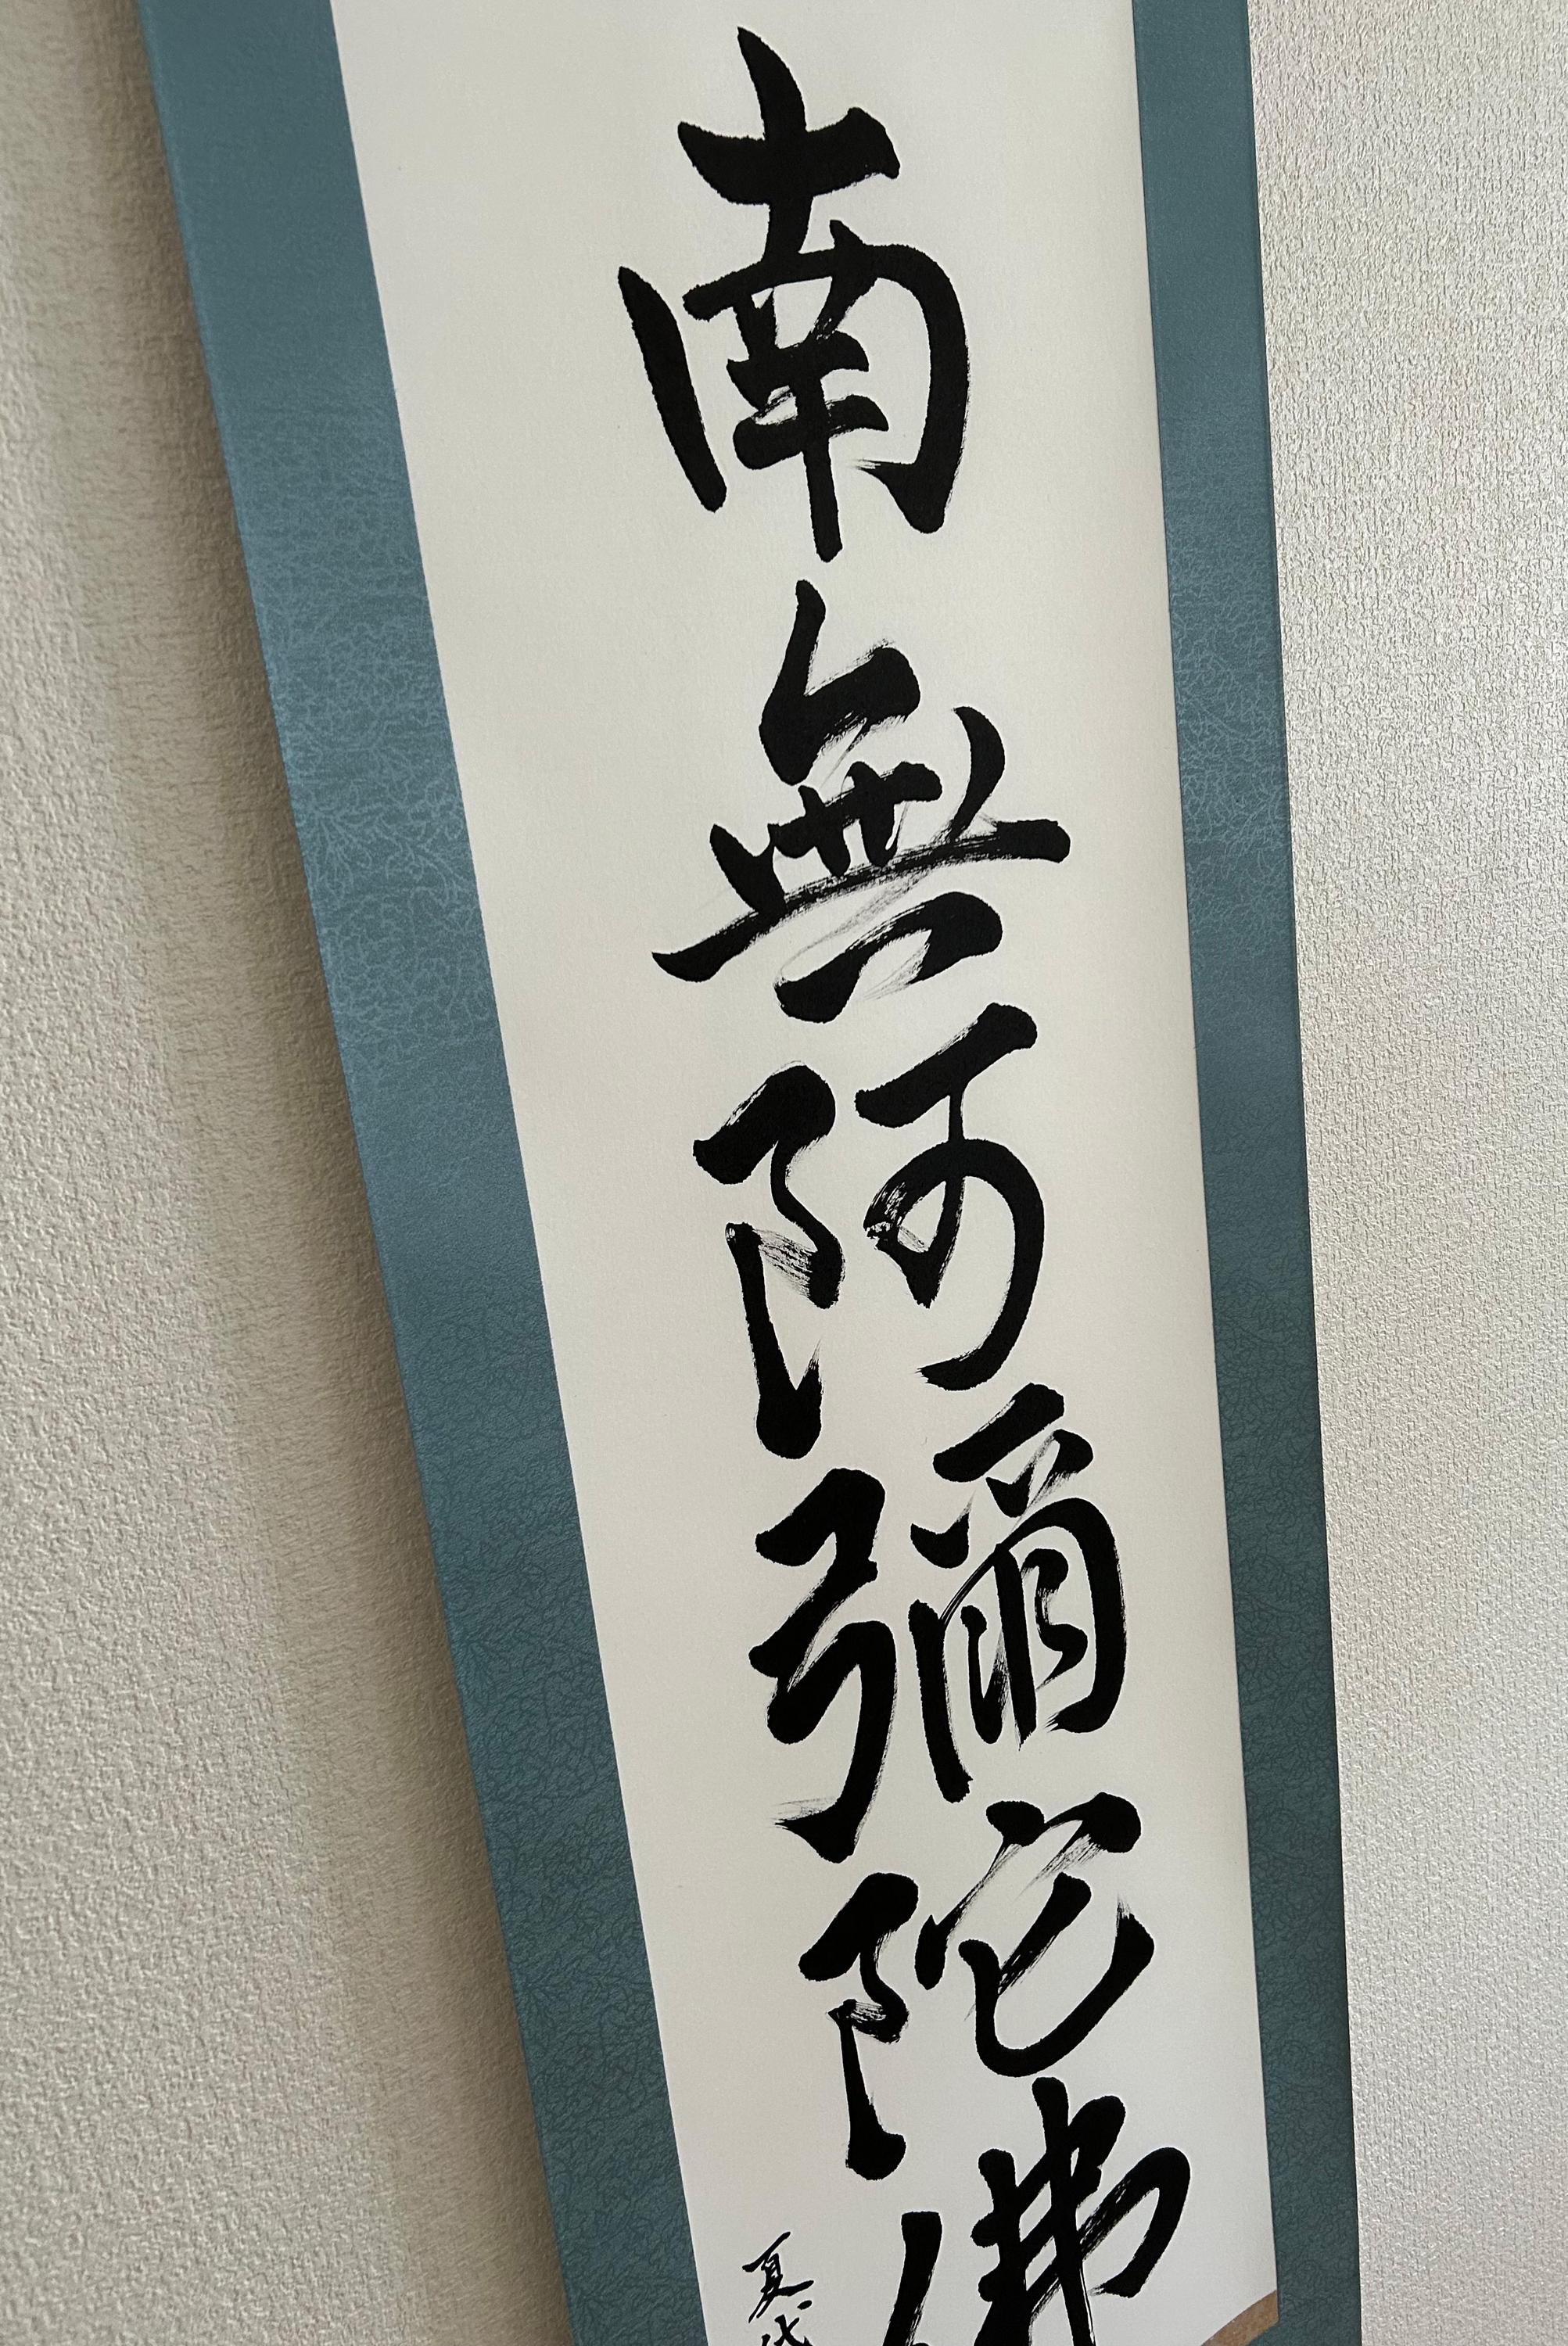 南無阿彌陀佛
夏代